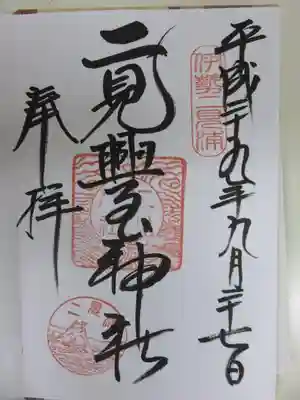 平成二十九年九月二十七日
伊勢二見浦
二見興玉神社
奉拝